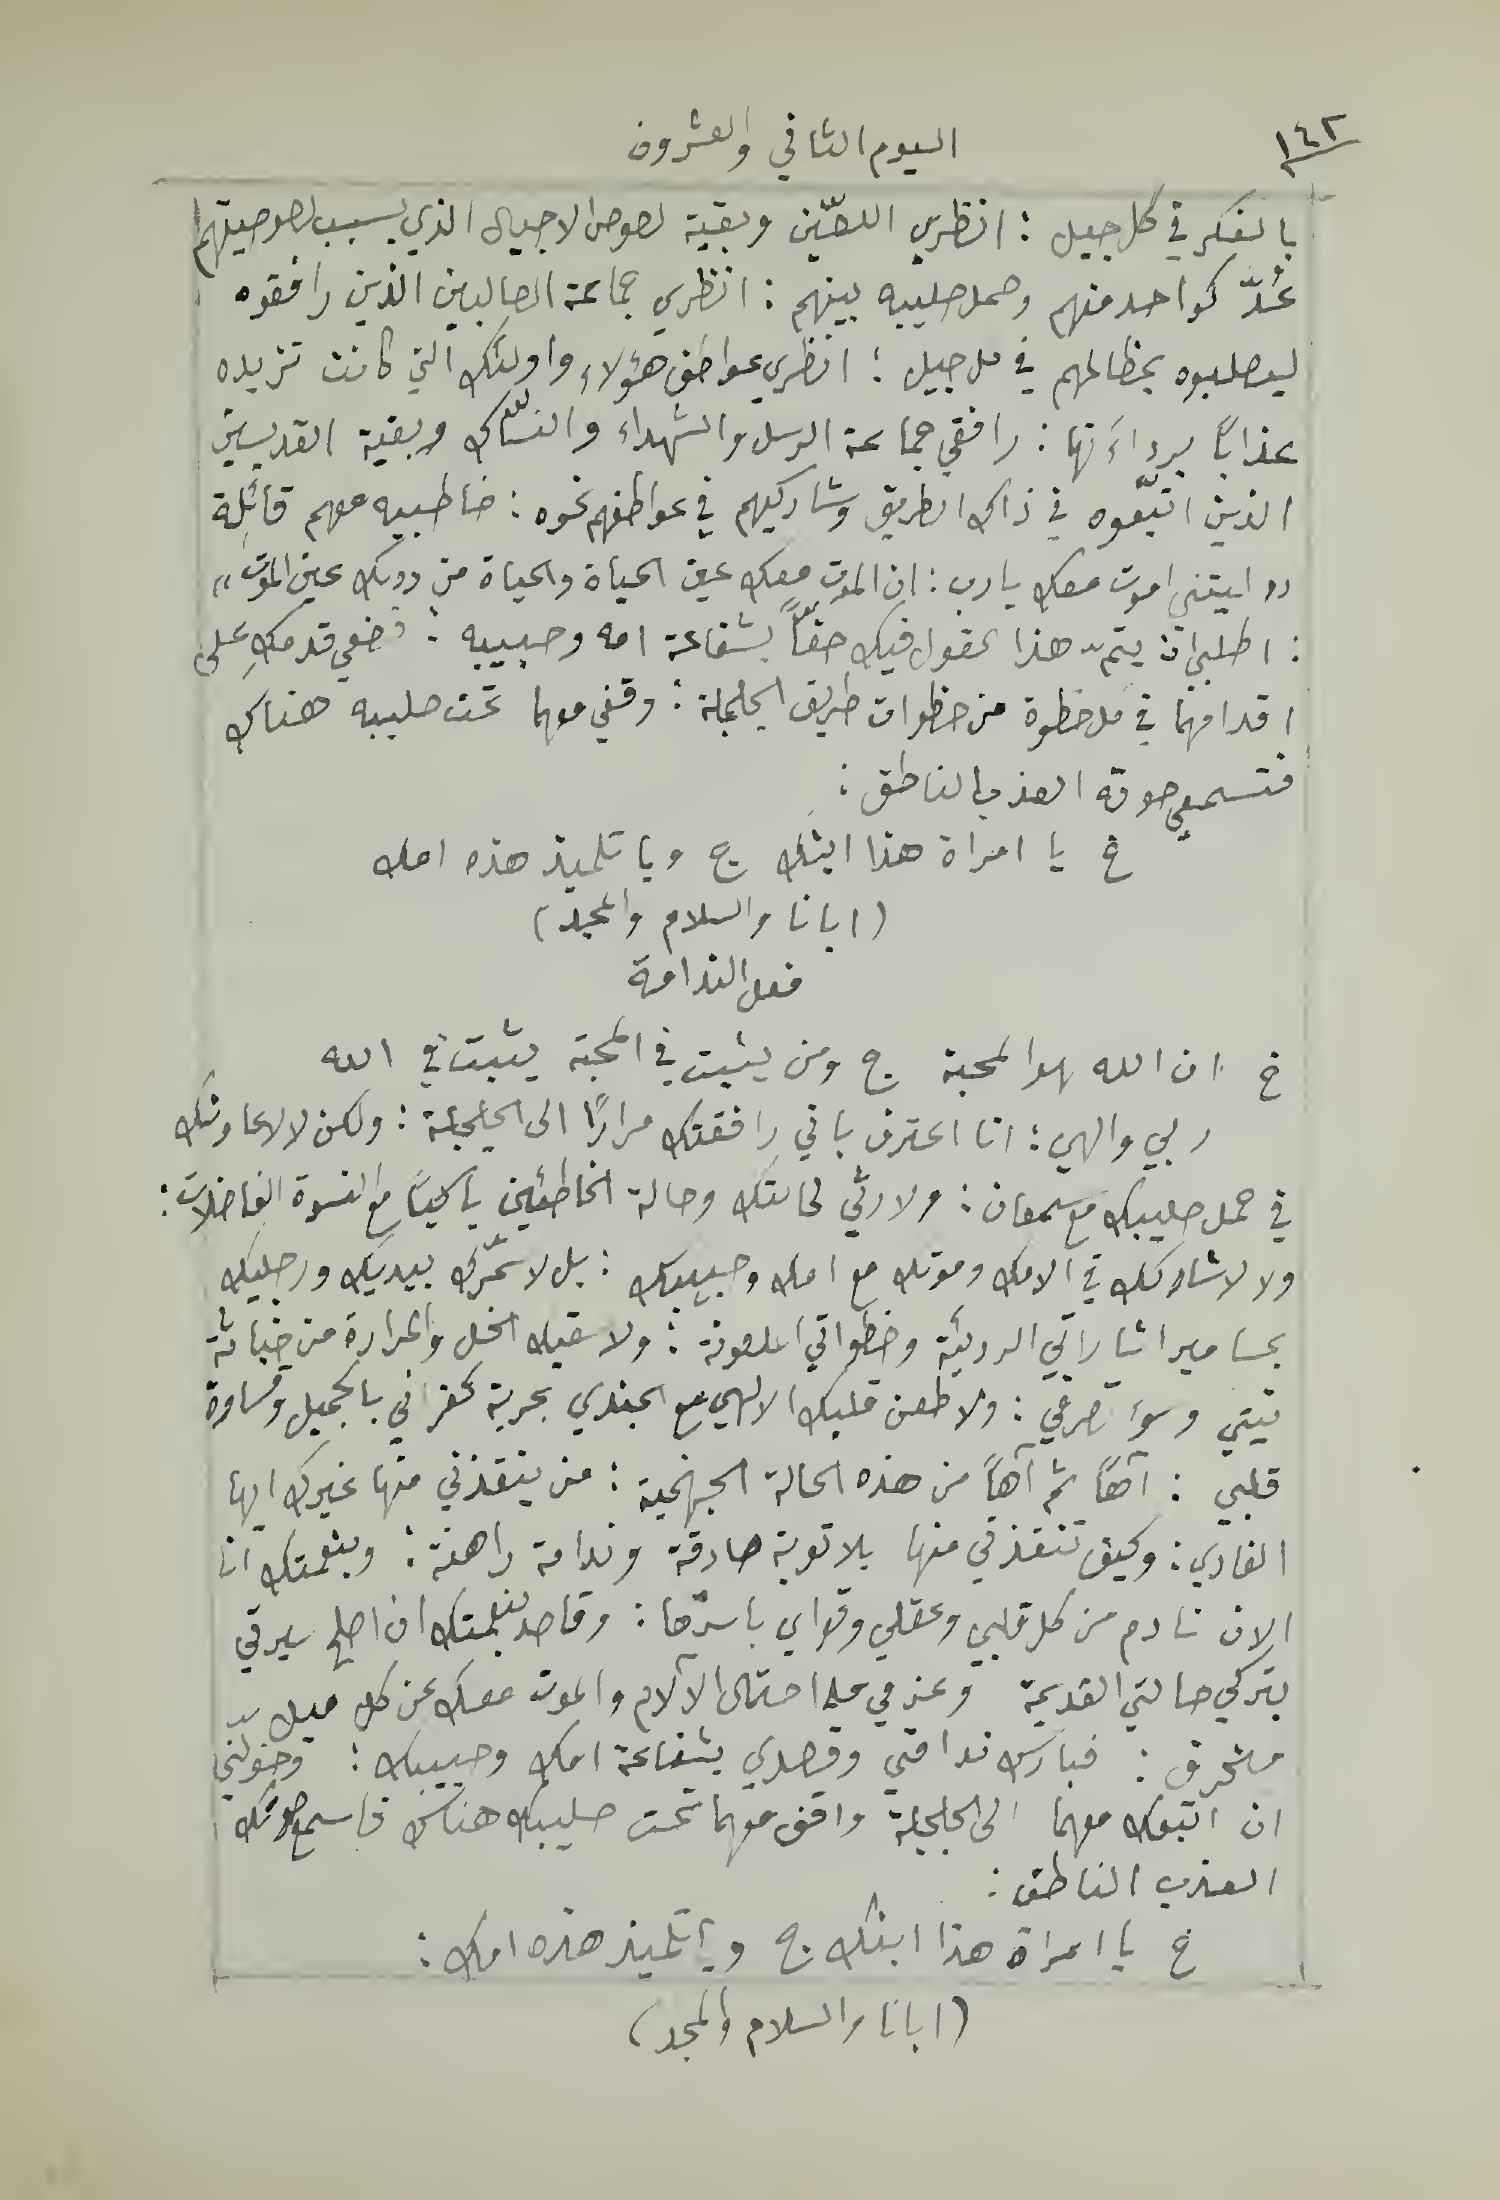 ١٤٢
اليوم الثاني والعشرون
بالفكر في كل جيل : انظري اللصّين وبقية لصوص الاجيال الذي بسبب لصوصيتهم
عُدّ كواحد منهم وحمل صليبه بينهم : انظري جماعة الصالبين الذين رافقوه
ليصلبوه بمظالمهم في كل جيل : انظري عواطف هؤلاء واولئك التي كانت تزيده
عذاباً برداءَتها : رافقي جماعة الرسل والشهداء والنسّاك وبقية القديسين
الذين اتبّعوه في ذاك الطريق وشاركيهم في عواطفهم نحوه : خاطبيه معهم قائلِة
" ليتني اموت معك يا رب : ان الموت معك عين الحياة والحياة من دونك عين الموت "
: اطلبي ان يتمّ هذا القول فيك حقّاً بشفاعة امه وحبيبه : فضعي قدمكِ على
اقدامهما في كل خطوة من خطوات طريق الجلجلة : وقفي معهما تحت صليبه هناك
فتسمعي صوته العذب الناطق :
خ يا امراة هذا ابنك ج ويا تلميذ هذه امك
( ابانا والسلام والمجد )
فعل الندامة
خ ان الله هو المحبة ج ومن يثبت في المحبة يثبت في الله
ربي والهي : انا اعترف باني رافقتك مرارًا الى الجلجلة : ولكن لا لاعاونك
في حمل صليبك مع سمعان : ولا لارثي لحالتك وحالة الخاطئين باكياً مع النسوة الفاضلات :
ولا لاشاركك في الامك وموتك مع امك وحبيبك : بل لاسمّرك بيديك ورجليك
بمسامير اشاراتي الرديئة وخطواتي الملعونة : ولاسقيك الخل والمرارة من خباثة
نيتي وسوء تصرفي : ولاطعن قلبك الالهي مع الجندي بحربة كفراني بالجميل وقساوة
قلبي : آهاً ثم آهاً من هذه الحالة الجهنمية : من ينقذني منها غيرك ايها
الفادي : وكيف تنقذني منها بلا توبة صادقة وندامة راهنة : وبنعمتك انا
الان نادم من كل قلبي وعقلي وقواي باسرّها : وقاصد بنعمتك ان اصلح سيرتي
بتركي حالتي القديمة وعزمي على احتمال الآلام والموت معك عن كل ميل
منحرف : فبارك ندامتي وقصدي بشفاعة امك وحبيبك : وخوّلني
ان اتبعك معهما الى الجلجلة واقف معهما تحت صليبك هناك فاسمع صوتك
العذب الناطق :
خ يا امراة هذا ابنك ج ويا تلميذ هذه امك :
( ابانا والسلام والمجد )